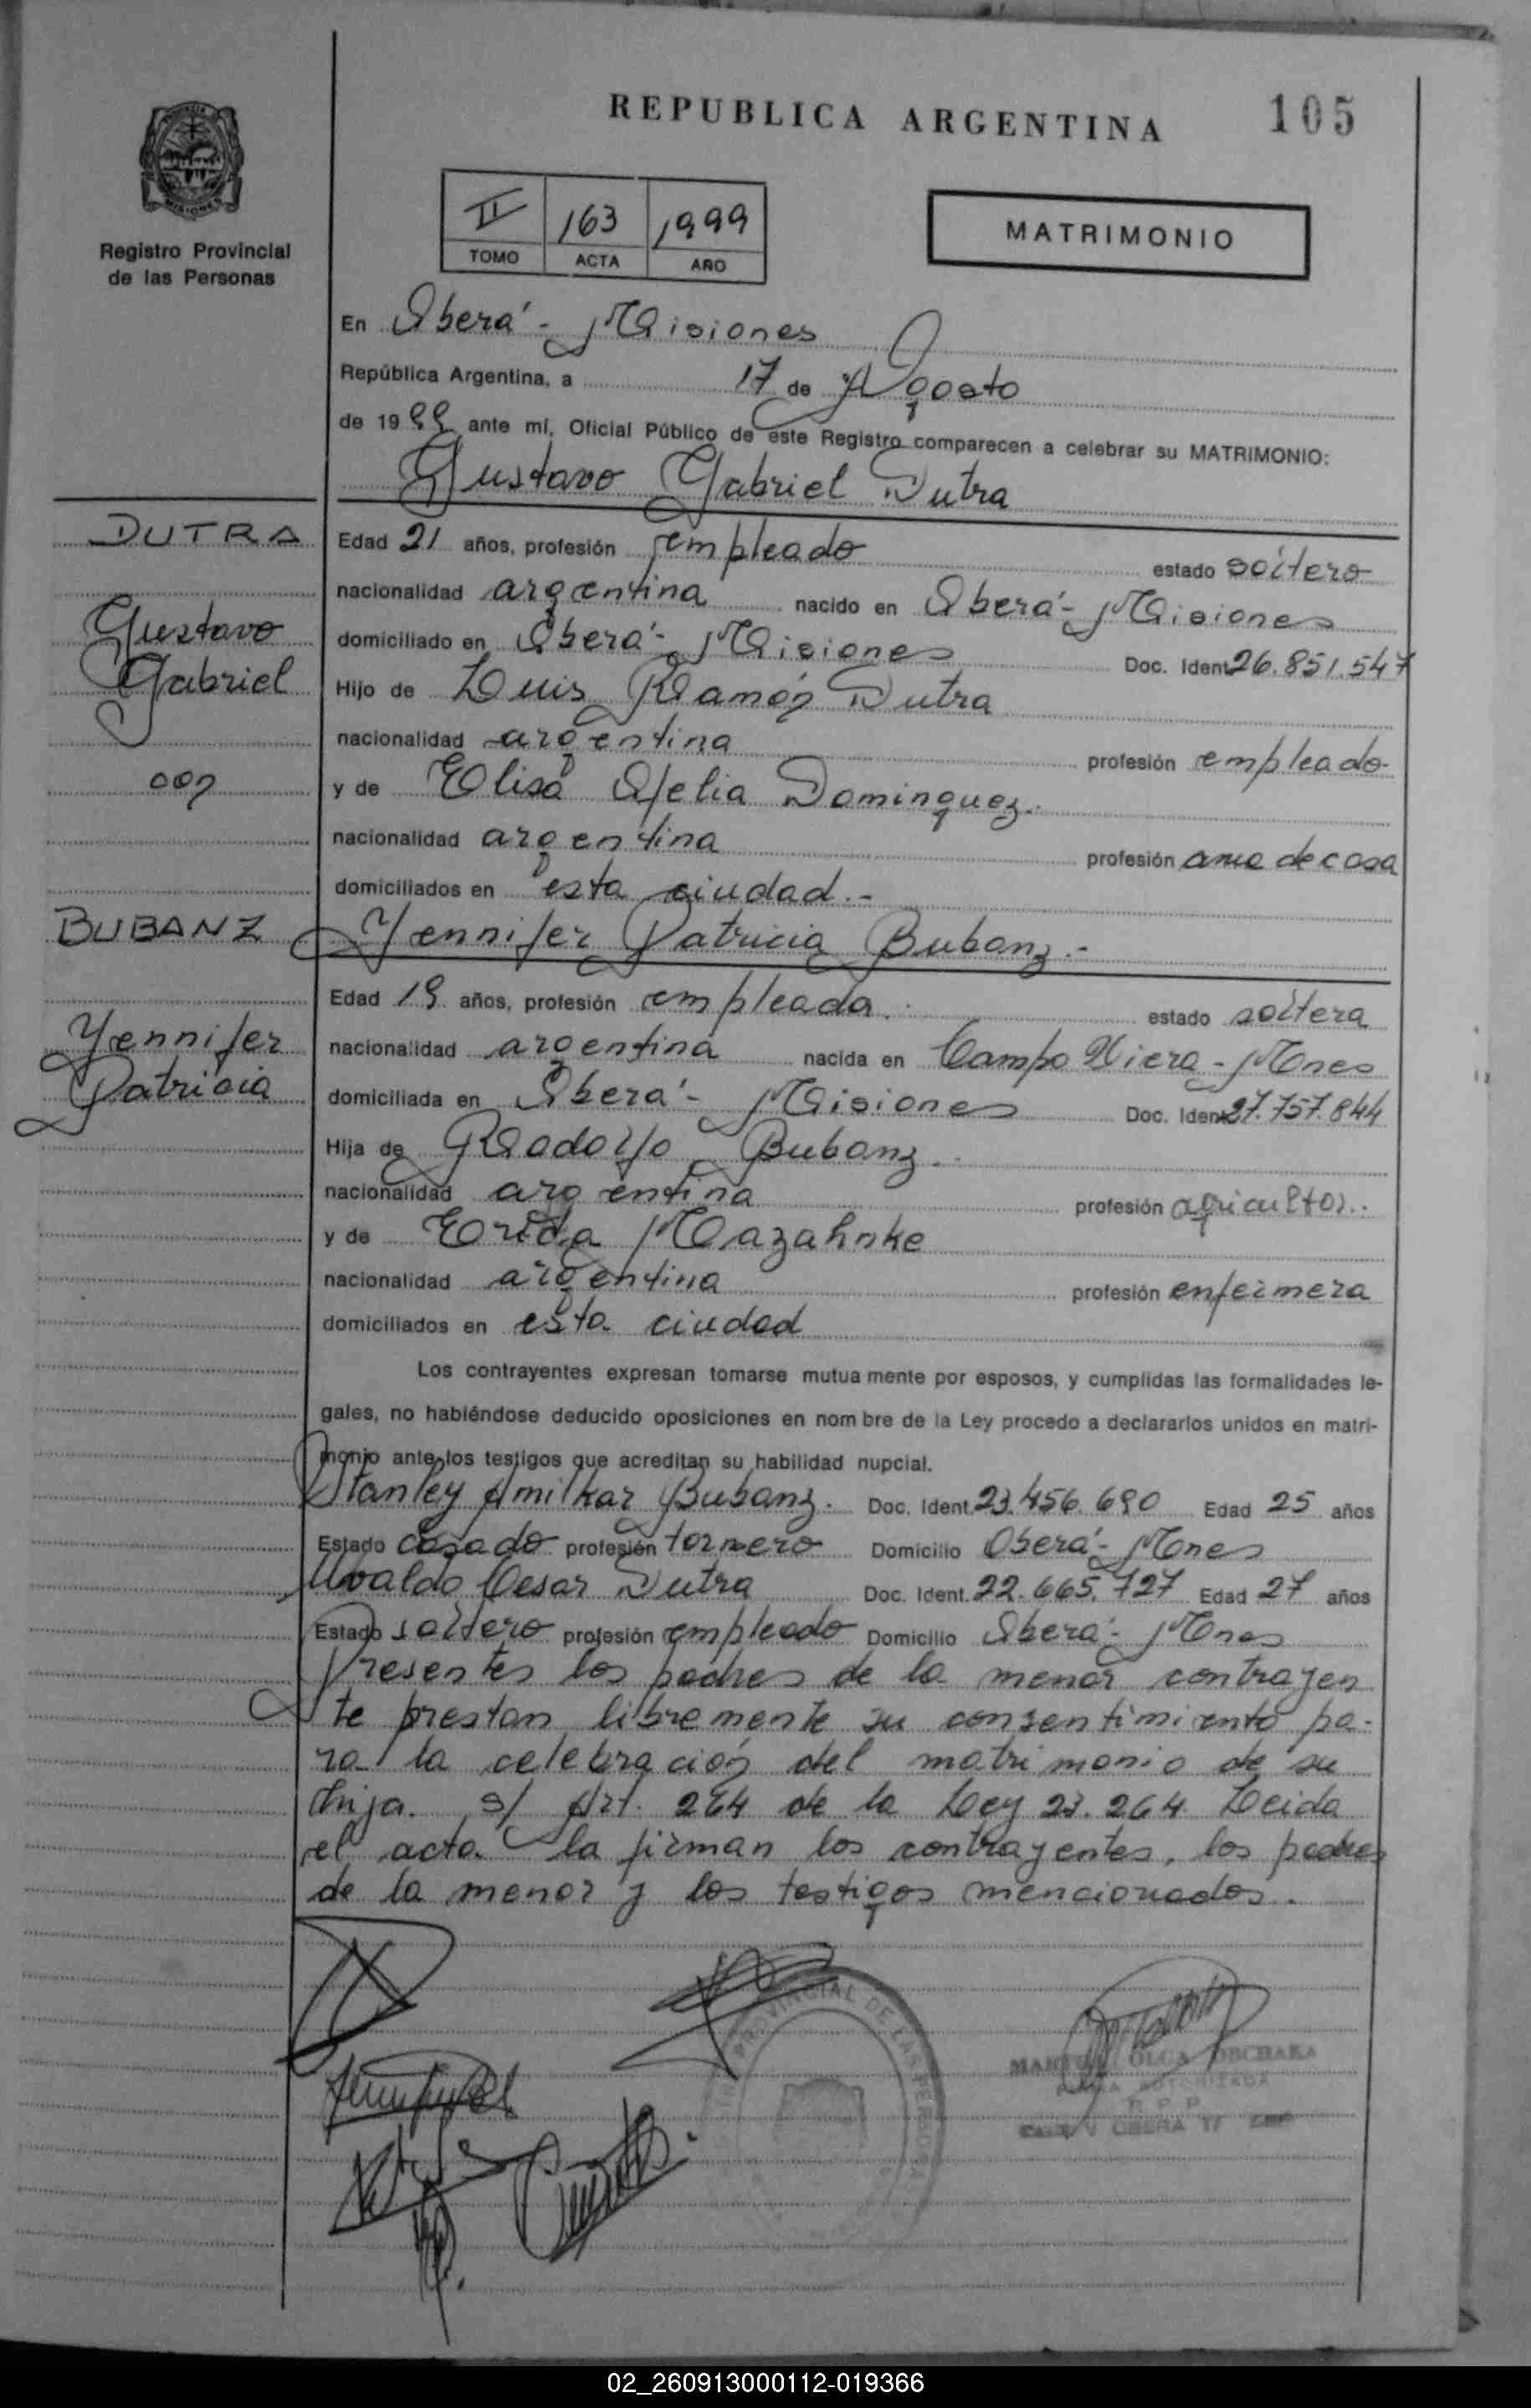 REPUBLICA ARGENTINA
105
MISIONES
Registro Provincial
de las Personas
II 163 1999
TOMO ACTA AÑO
MATRIMONIO
En Oberá - Misiones
República Argentina, a 17 de Agosto
de 1999 ante mí, Oficial Público de este Registro comparecen a celebrar su MATRIMONIO:
Gustavo Gabriel Dutra
DUTRA
Gustavo
Gabriel
con
BUBANZ
Yennifer
Patricia
Edad 21 años, profesión empleado estado soltero
nacionalidad argentina nacido en Oberá - Misiones
domiciliado en Oberá - Misiones Doc. Ident. 26.851.547
Hijo de Luis Ramón Dutra
nacionalidad argentina profesión empleado
y de Elisa Ofelia Dominguez.
nacionalidad argentina profesión ama de casa
domiciliados en esta ciudad.-
Yennifer Patricia Bubanz.-
Edad 19 años, profesión empleada. estado soltera
nacionalidad argentina nacida en Campo Viera - Mnes
domiciliada en Oberá - Misiones Doc. Ident. 27.757.844
Hija de Rodolfo Bubanz.
nacionalidad argentina profesión agricultor.
y de Mazahnke
nacionalidad argentina profesión enfermera
domiciliados en esta ciudad
Los contrayentes expresan tomarse mutua mente por esposos, y cumplidas las formalidades le-
gales, no habiéndose deducido oposiciones en nom bre de la Ley procedo a declararlos unidos en matri-
monio ante los testigos que acreditan su habilidad nupcial.
Stanley Amilkar Bubanz. Doc. Ident. 23.456.690 Edad 25 años
Estado casado profesión tornero Domicilio Oberá - Mnes
Uvaldo Cesar Dutra Doc. Ident. 22.665.727 Edad 27 años
Estado soltero profesión empleado Domicilio Oberá - Mnes
Presentes los padres de la menor contrayen
te prestan libremente su consentimiento pa-
ra la celebración del matrimonio de su
hija. s/ Art. 264 de la Ley 23.264 Leida
el acta la firman los contrayentes, los padres
de la menor y los testigos mencionados.
PROVINCIAL DE LAS PERSONAS
OLGA
AUTORIZADA
R.P.P.
OBERA
02_260913000112-019366